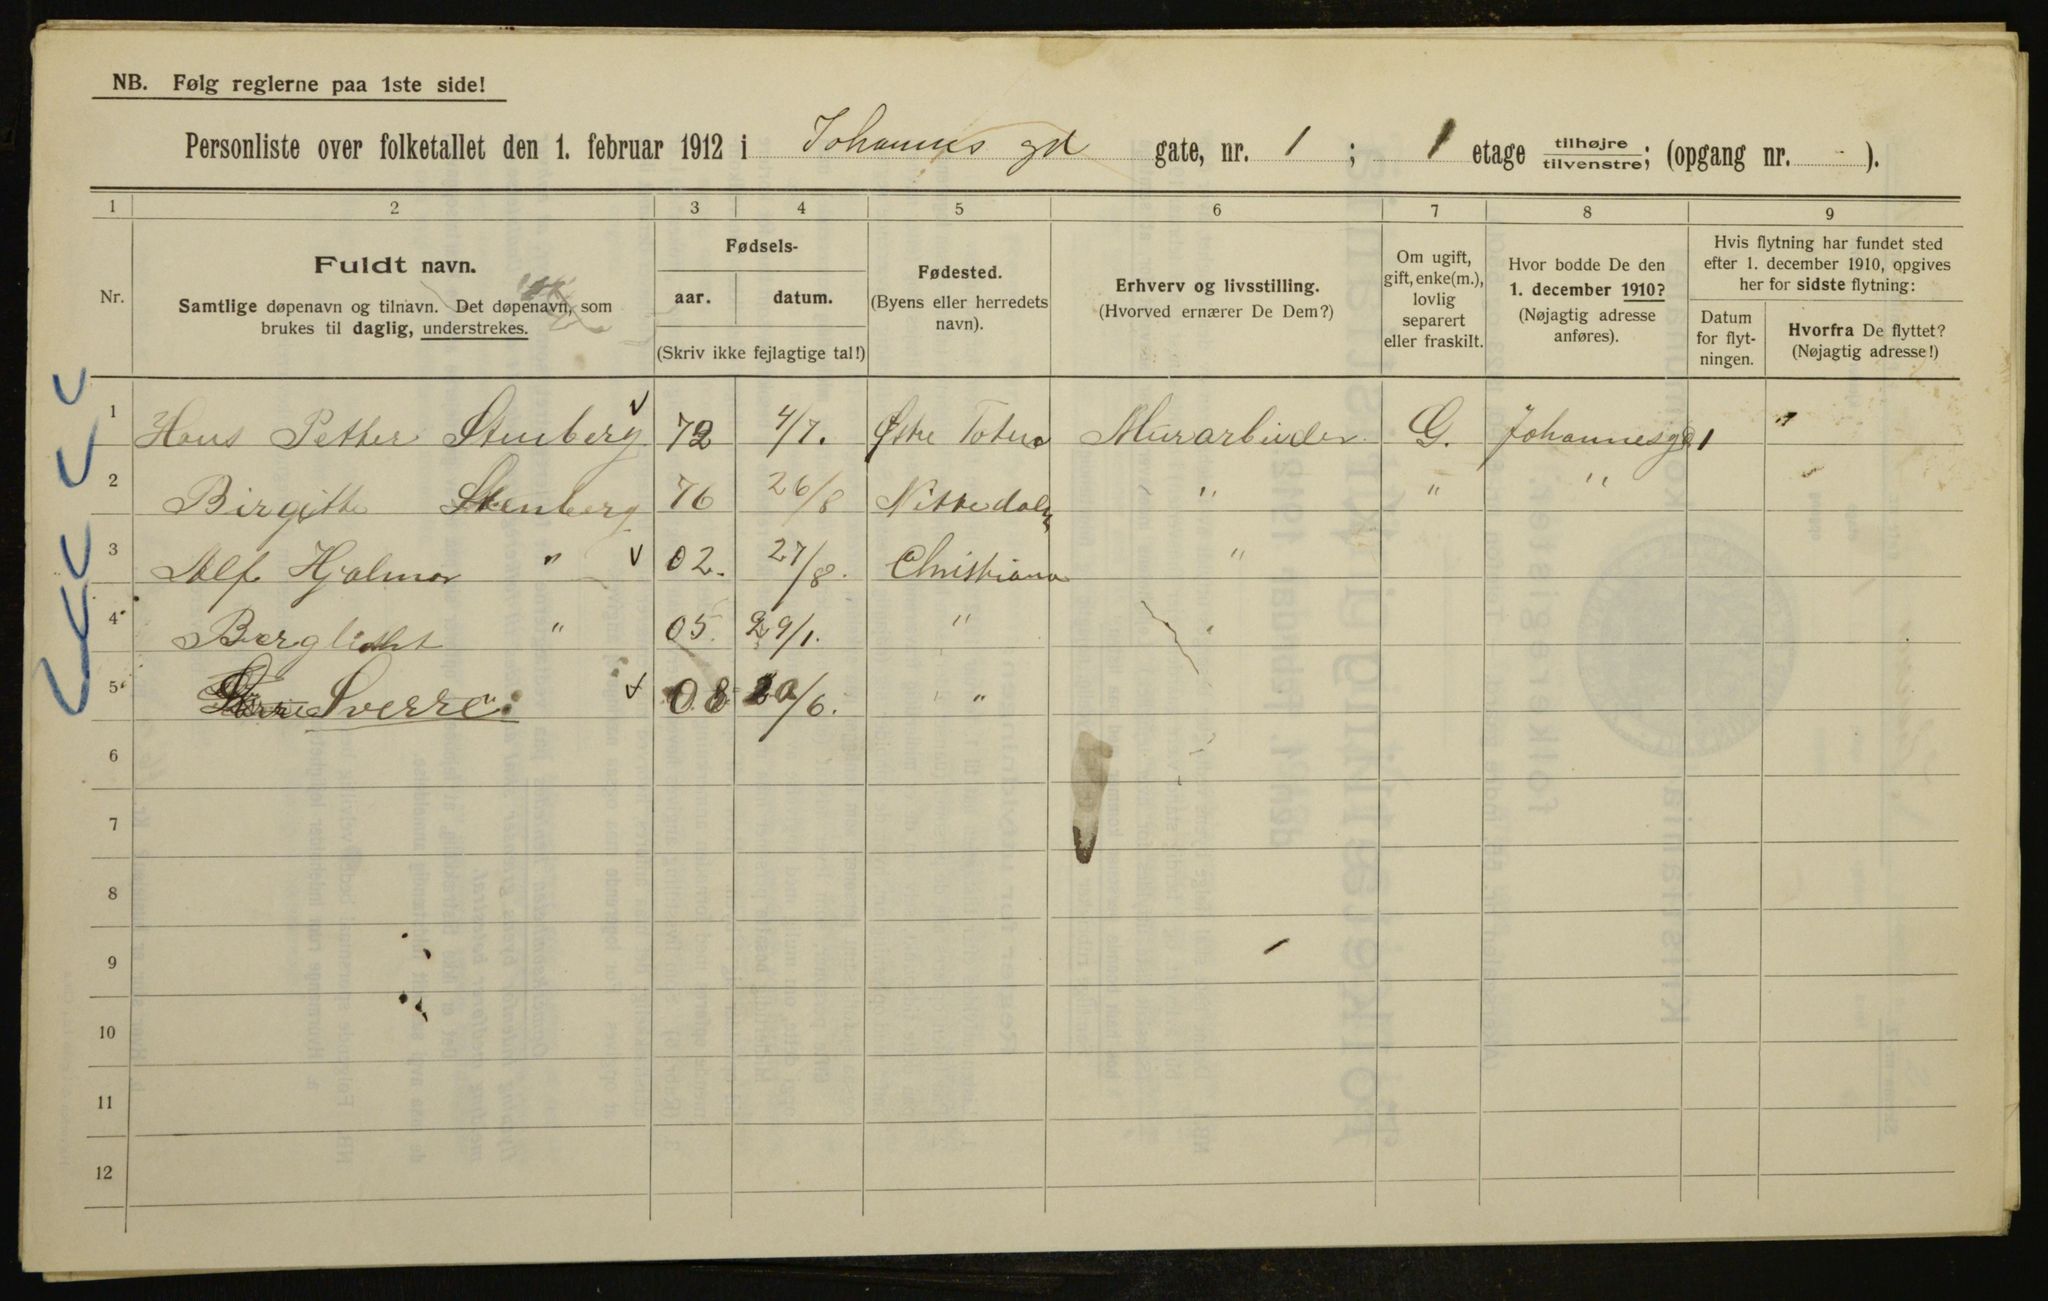 NB. Følg reglerne paa 1ste side!
Personliste over folketallet den 1. februar 1912 i Johannes gd gate, nr. 1 ; 1 etage tilhøjre/tilvenstre; (opgang nr. ).
1 2 3 4 5 6 7 8 9
Nr.
Fuldt navn.
Samtlige døpenavn og tilnavn. Det døpenavn, som
brukes til daglig, understrekes.
Fødsels-
aar. datum.
(Skriv ikke fejlagtige tal!)
Fødested.
(Byens eller herredets
navn).
Erhverv og livsstilling.
(Hvorved ernærer De Dem?)
Om ugift,
gift, enke(m.),
lovlig
separert
eller fraskilt.
Hvor bodde De den
1. december 1910?
(Nøjagtig adresse
anføres).
Hvis flytning har fundet sted
efter 1. december 1910, opgives
her for sidste flytning:
Datum
for flyt-
ningen.
Hvorfra De flyttet?
(Nøjagtig adresse!)
1 Hans Petter Stenberg 72 4/7. Østre Toten Murarbeider G. Johannesgd 1 "
2 Birgitte Stenberg 76 26/8 Nittedalen " " "
3 Alf Hjalmar " 02. 27/8. Christiania "
4 Bergliot " 05. 29/1. " "
5 Sverre " 08 20/6. "
6
7
8
9
10
11
12